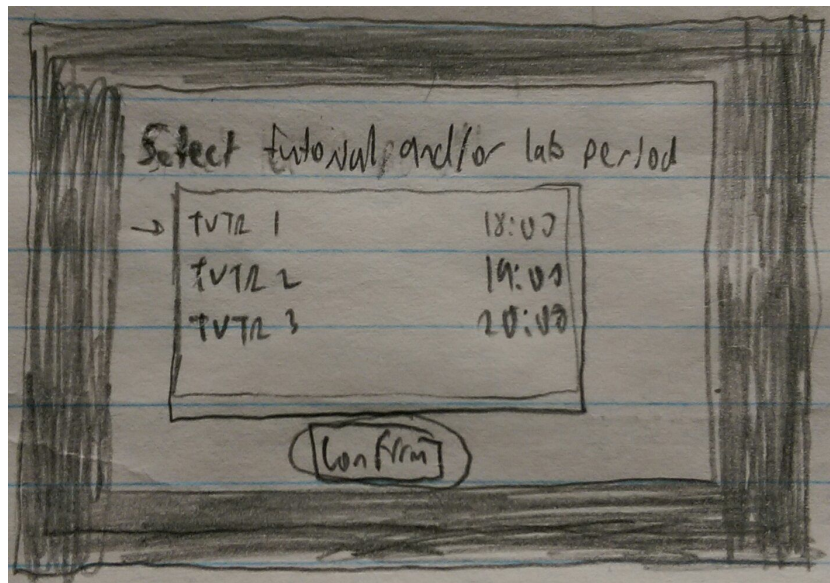 Select tutorial, and/or lab period
→ TUTR 1 18:00
TUTR 2 19:00
TUTR 3 20:00
Confirm